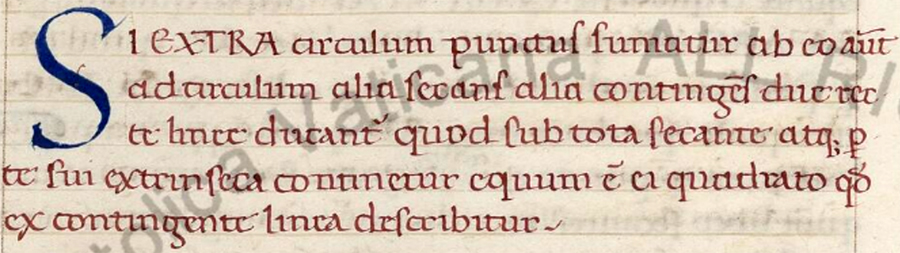 SI EXTRA circulum punctus sumatur ab eo aūt
ad circulum alia secans alia contingēs due rec
te linee ducant᷑ quod sub tota secante atq; ꝑ
te sui extrinseca continetur equum ē ei quadrato qđ
ex contingente linea describitur